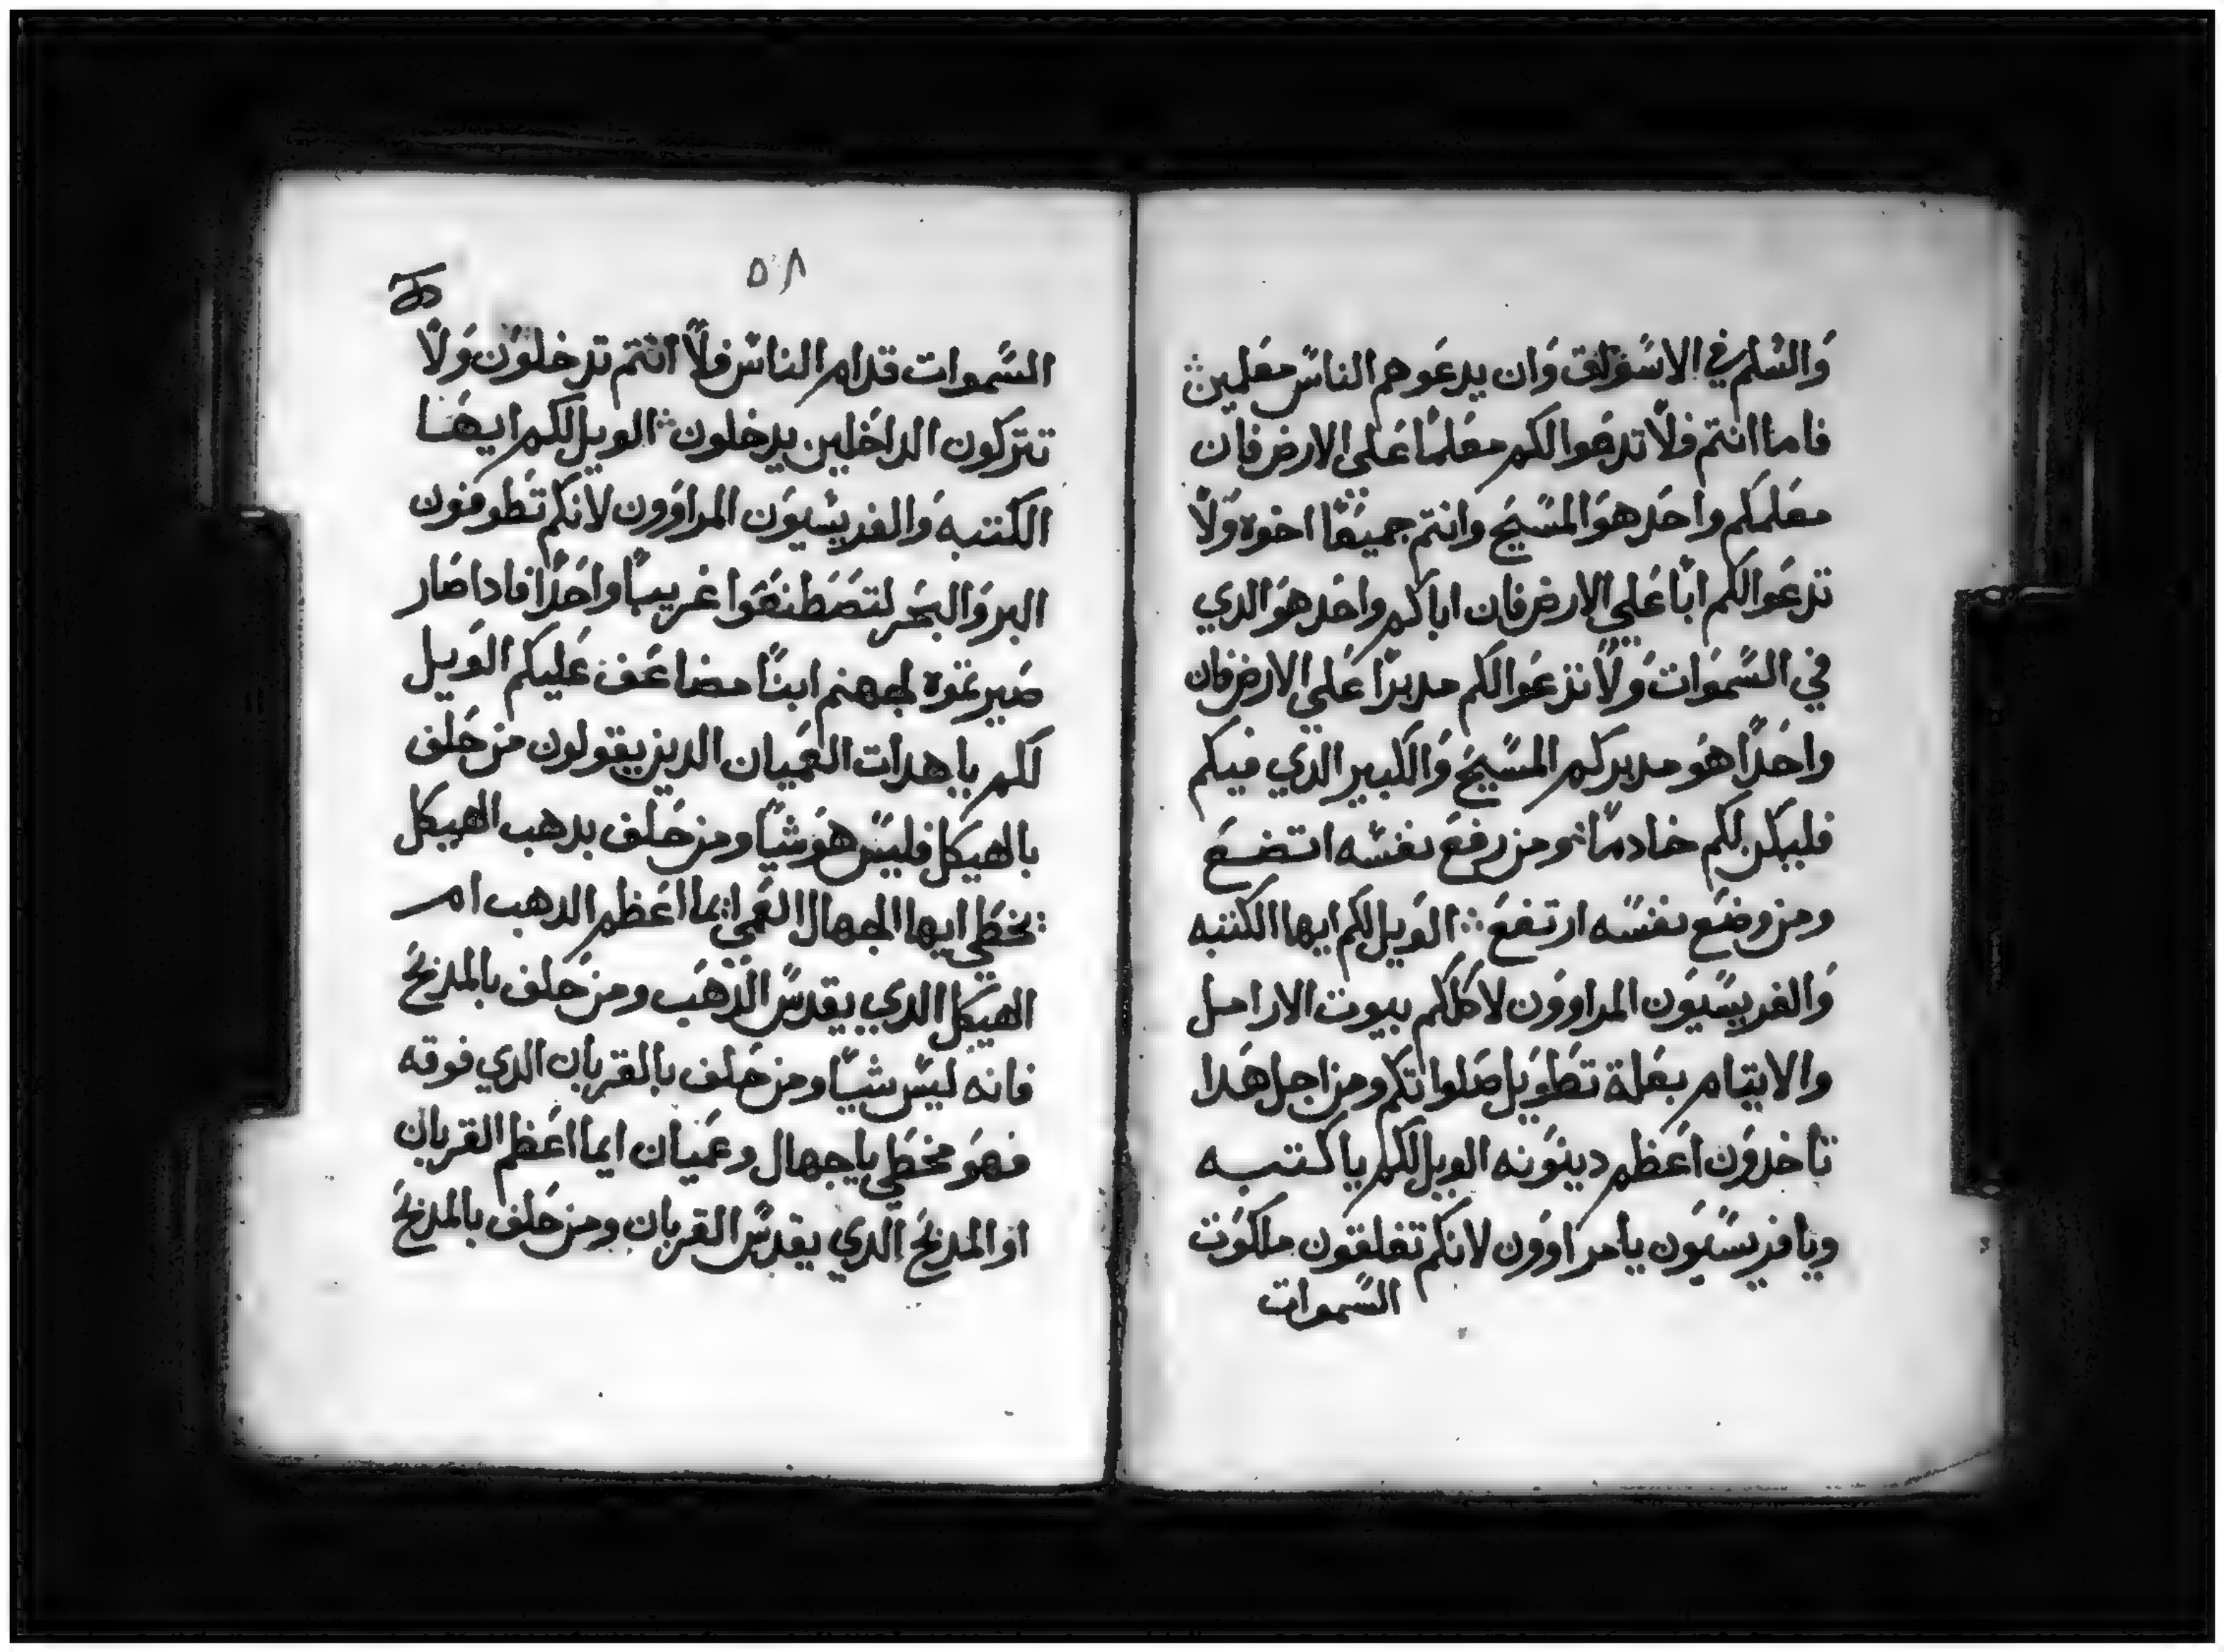 والسلم في الاسواق وان يدعوهم الناس معلمين ∴
فاما انتم فلا تدعوا لكم معلما على الارض فان
معلمكم واحد هو المسيح وانتم جميعا اخوه ولا
تدعوا لكم ابا علي الارض فان اباكم واحد هو الدي
في السموات ولا تدعوا لكم مدبرا علي الارض فان
واحدا هو مدبركم المسيح والكبير الدي فيكم
فليكن لكم خادما ∴ ومن رفع نفسه اتضع
ومن وضع نفسه ارتفع ∴ الويل لكم ايها الكتبه
والفريسيون المراوون لاكلكم بيوت الارامل
والايتام بعلة تطويل صلواتكم ومن اجل هدا
تاخدون اعظم دينونه الويل لكم يا كتبه
ويا فريسيون يا مراوون لانكم تغلقون ملكوت
السموات
٥٨
السموات قدام الناس فلا انتم تدخلون ولا
تتركون الداخلين يدخلون ∴ الويل لكم ايها
الكتبه والفريسيون المراوون لانكم تطوفون
البر والبحر لتصطنعوا غريبا واحدا فادا صار
صيرتموه لجهنم ابنا مضاعف عليكم الويل
لكم يا هدات العميان الدين يقولون من حلف
بالهيكل فليس هو شيا ومن حلف بدهب الهيكل
يخطي ايها الجهال العمي ايما اعظم الدهب ام
الهيكل الدي يقدس الدهب ومن حلف بالمدبح
فانه ليس شيا ومن حلف بالقربان الدي فوقه
فهو مخطي يا جهال وعميان ايما اعظم القربان
او المدبح الدي يقدس القربان ومن حلف بالمدبح